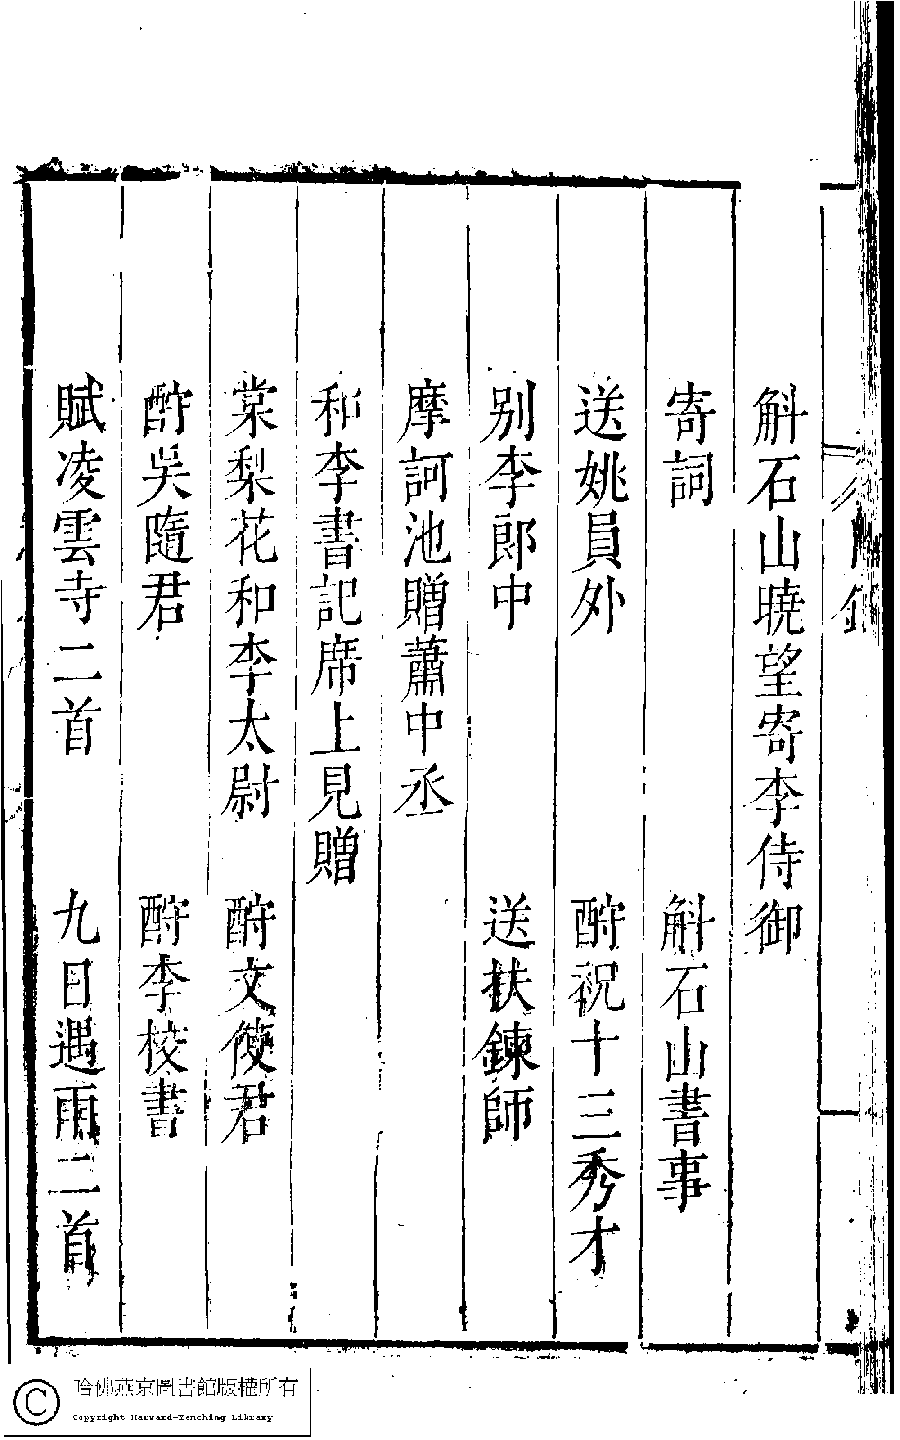 斛石山曉望寄李侍御
寄詞 斛石山書事
送姚員外 酧祝十三秀才
别李郎中 送扶鍊師
摩訶池贈蕭中丞
和李書記席上見贈
棠梨花和李太尉 酧文使君
酧吳隨君 酧李校書
賦凌雲寺二首 九日遇雨二首
哈佛燕京圖書館版權所有
Copyright Harvard-Yenching Library